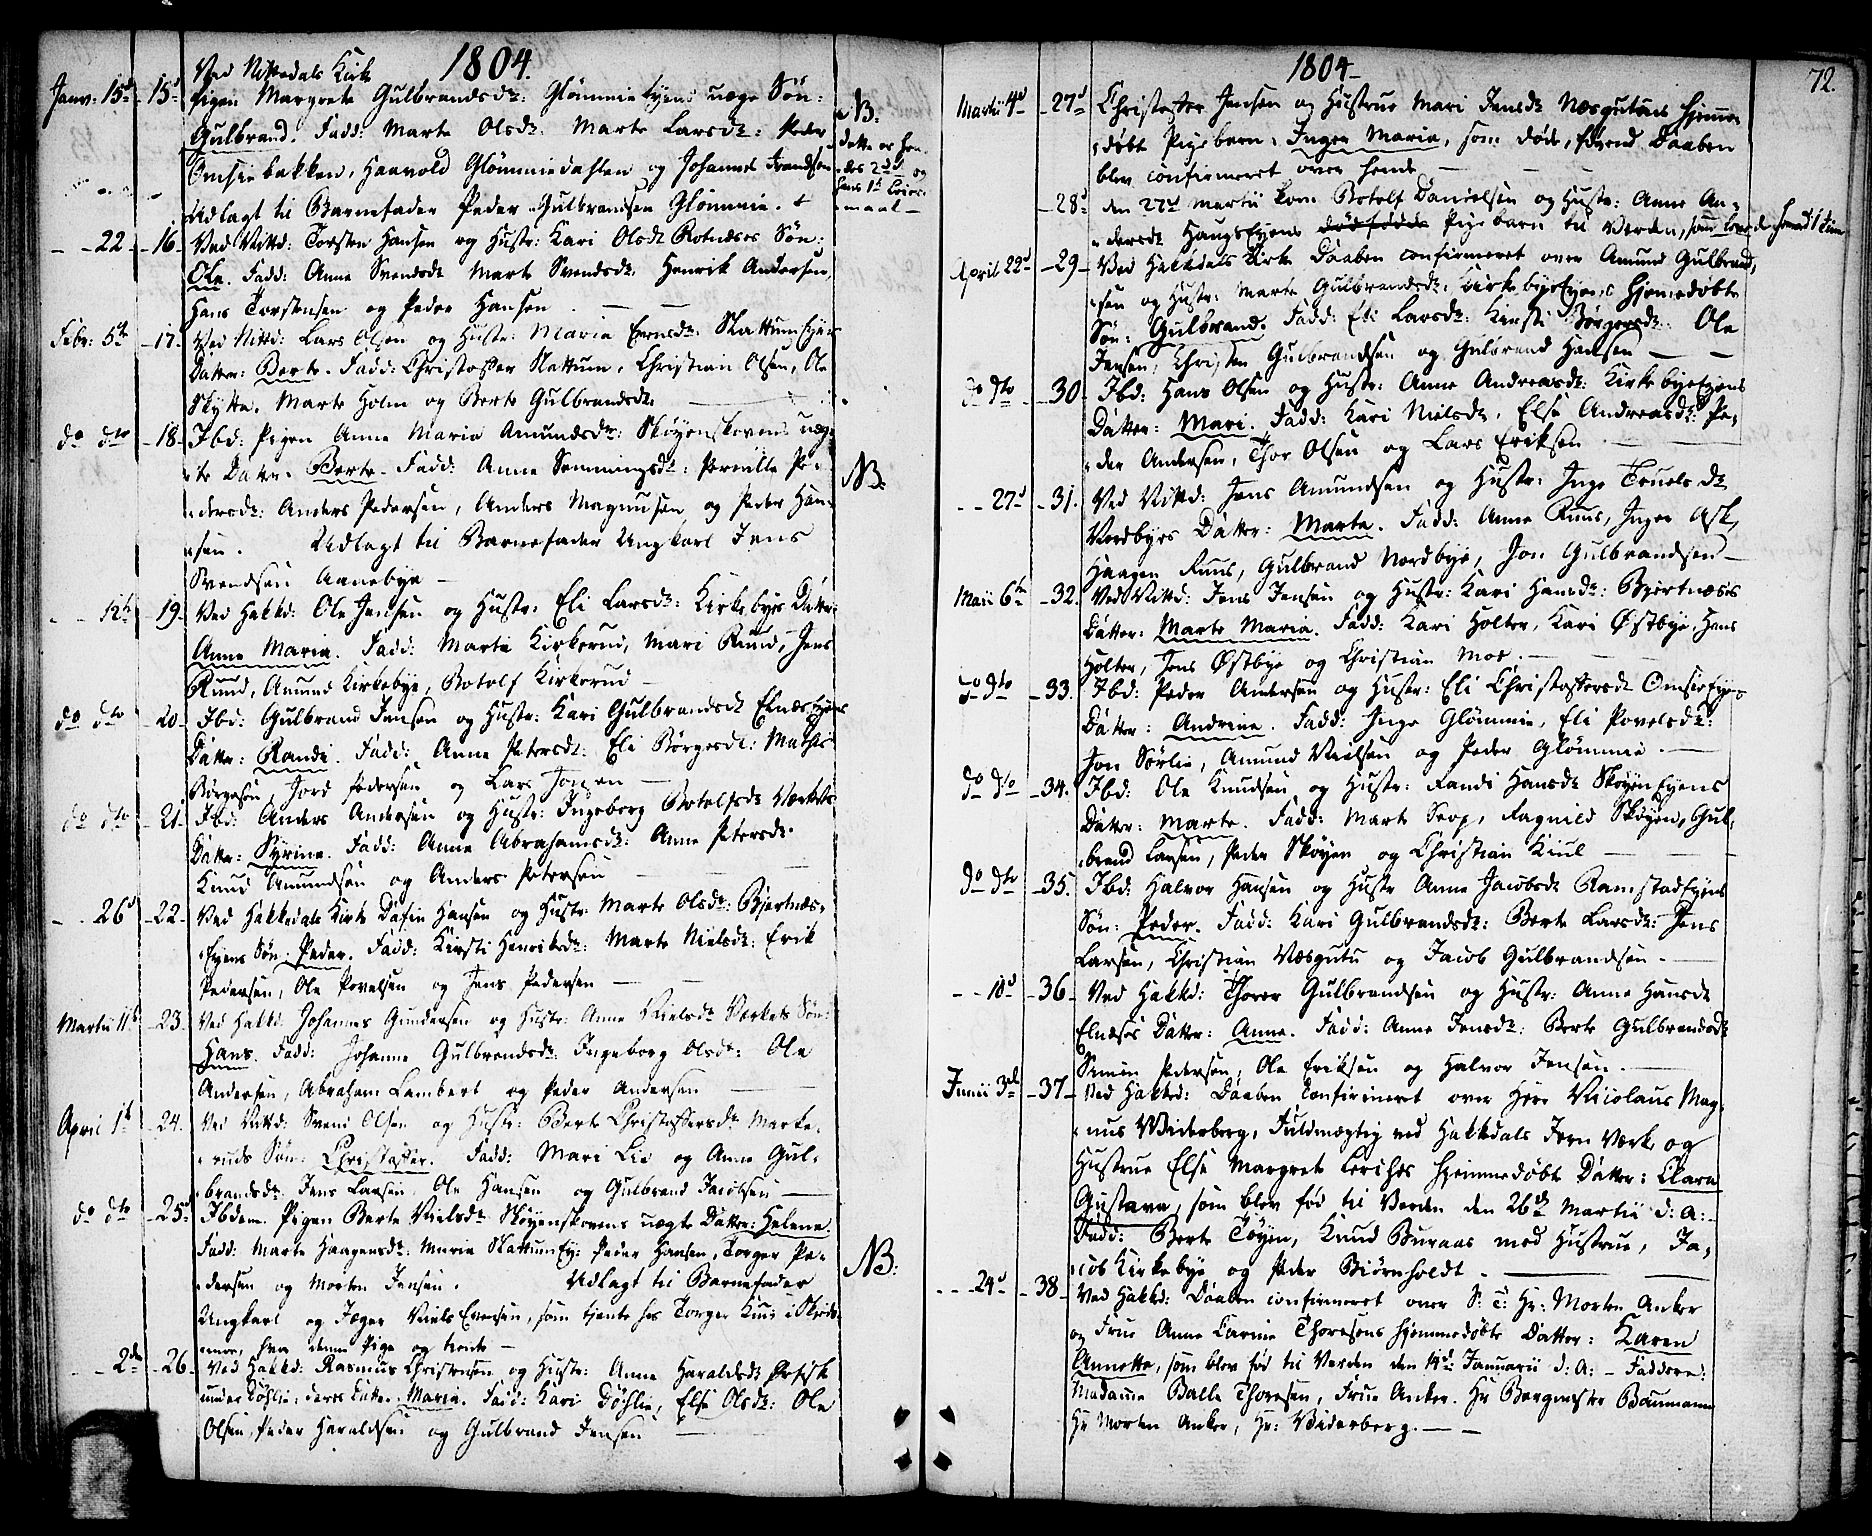 1804.
Ved Nittedals Kirk
Janv: 15d 15d Pigen Margrete Gulbrandsdr: Glömmieeyens uægte Søn:
Gulbrand. Fadd: Marte Olsdr: Marte Larsdr: Peder
Omsiebakken, Haavold Glömmiedahlen og Johannes
Udlagt til Barnefader Peder Gulbrandsen Glömmie. +
NB:
dette er hen-
des 2det og
hans 1te Leier-
maal -
- - 22 - 16. Ved Nittd: Torsten Hansen og Hustr: Kari Olsdr Rotnæses Søn:
Ole. Fadd: Anne Svendsdr Marte Svendsdr: Henrik Andersen,
Hans Torstensen og Peder Hansen
Febr: 5te - 17. Ved Nittd: Lars Olsen og Hustr: Maria Evensdr: Slattumseyens
Datter: Berte. Fadd: Christoffer Slattum, Christian Olsen, Ole
Skytte, Marte Holm og Berte Gulbrandsdr:
do dto - 18 - Ibd: Pigen Anne Maria Amundsdr: Skøyenskovens uæg-
te Datter. Berte. Fadd: Anne Semmingsdr: Pernille Pe-
dersdr: Anders Pedersen, Anders Magnusen og Peder Han-
sen. Udlagt til Barnefader Ungkarl Jens
Svendsen Aanebye -
NB:
- - 12te 19. Ved Hakkd: Ole Jensen og Hustr: Eli Larsdr: Kirkebyes Datter:
Anne Maria. Fadd: Marte Kirkerud, Mari Ruud, Jens
Ruud, Amund Kirkebye, Botolf Kirkerud -
do dto - 20. Ibd: Gulbrand Jensen og Hustr: Kari Gulbrandsdr Elnæseyens
Datter: Randi. Fadd: Anne Petersdr: Eli Børgesdr: Mathis
Børgesen, Jord Pedersen og Lars
do dto - 21. Ibd: Anders Andersen og Hustr: Ingeborg Botolfsdr Værkets
Datter: Syrine. Fadd: Anne Abrahamsdr: Anne Petersdr.
Knud Amundsen og Anders Petersen
- - 26d - 22 - Ved Hakkedals Kirke Dafin Hansen og Hustr: Marte Olsdr: Bjertnæs-
eyens Søn: Peder. Fadd: Kirsti Henriksdr: Marte Nielsdr: Erik
Pedersen, Ole Povelsen og Jens Pedersen -
Martii 11te - 23. Ved Hakkd: Johannes Gundersen og Hustr: Anne Nielsdr Værkets Søn:
Hans. Fadd: Johanne Gulbrandsdr: Ingeborg Olsdr: Ole
Andersen, Abraham Lambert og Peder Andersen
April 1te - 24. Ved Nittd: Svend Olsen og Hustr: Berte Christoffersdr Marke-
ruds Søn: Christoffer. Fadd: Mari Lie og Anne Gul-
brandsdr: Jens Larsen, Ole Hansen og Gulbrand Jacobsen -
do dto - 25. Ibdem. Pigen Berte Nielsdr Skøyenskovens uægte Datter: Helene
Fadd: Marte Haagensdr: Maria Slattumey: Peder Hansen, Torger Pe-
dersen og Morten Jensen. Udlagt til Barnefader
Ungkarl og Jæger Niels Evensen, som tjente hos Torger Kuus i
hvor denne Pige og tiente -
NB:
- - 2den - 26. Ved Hakkd: Rasmus Christensen og Hustr: Anne Haraldsdr
under Døhlie, deres Datter: Maria. Fadd: Kari Døhlie, Else Olsdr: Ole
Olsen, Peder Haraldsen og Gulbrand Jensen
1804 - 72.
Martii 4d - 27d Christoffer Jensen og Hustrue Mari Jensdr Næsgutuns hjemme-
døbt Pigebarn: Inger Maria, som døde, førend Daaben
blev confirmeret over hende -
- 28d den 27d Martii kom Botolf Danielsen og Hustr: Anne An-
dersdr Haugseyens dødfødde Pigebarn til Verden, som levede 1 time
April 22d - 29 - Ved Hakkdals Kirke Daaben confirmeret over Amund Gulbrand-
sen og Hustr: Marte Gulbrandsdr: Kirkebyeeyens hjemedøbte
Søn: Gulbrand. Fadd: Eli Larsdr: Kirsti Børgersdr: Ole
Jensen, Christen Gulbrandsen og Gulbrand Hansen -
do dto - 30. Ibd: Hans Olsen og Hustr: Anne Andreasdr: Kirkebyeeyens
Datter: Mari. Fadd: Kari Nielsdr, Else Andreasdr: Pe-
der Andersen, Thor Olsen og Lars Eriksen -
- - 27d - 31. Ved Nittd: Jens Amundsen og Hustr: Inge Truelsdr
Nordbyes Datter: Marte. Fadd: Anne Ruus, Inger Ask,
Haagen Ruus, Gulbrand Nordbye, Jon Gulbrandsen -
Maii 6te - 32. Ved Nittd: Jens Jensen og Hustr: Kari Hansdr: Bjertnæses
Datter: Marte Maria. Fadd: Kari Holter, Kari Østbye, Hans
Holter, Jens Østbye og Christian Moe. -
do dto - 33. Ibd: Peder Andersen og Hustr: Eli Christoffersdr Omsieeyens
Datter: Andrine. Fadd: Inge Glömmie, Eli Povelsdr:
Jon Sørlie, Amund Nielsen og Peder Glömmie. -
do dto - 34. Ibd: Ole Knudsen og Hustr: Randi Hansdr Skøyeneyens
Datter: Marte. Fadd: Marte Seop, Ragnild Skøyen, Gul-
brand Larsen, Peder Skøyen og Christian Kiul -
do dto - 35. Ibd: Halvor Hansen og Hustr Anne Jacobsdr Ramstadeyens
Søn: Peder. Fadd: Kari Gulbrandsdr: Berte Larsdr: Jens
Larsen, Christian Næsgutu og Jacob Gulbrandsen. -
- - 10d - 36 - Ved Hakkd: Thorer Gulbrandsen og Hustr: Anne Hansdr
Elnæses Datter: Anne. Fadd: Anne Jensdr: Berte Gulbrandsdr
Simen Pedersen, Ole Eriksen og Halvor Jensen. -
Junii 3d - 37 - Ved Hakkd: Daaben Confirmeret over Herr Nicolaus Mag-
nus Widerberg, Fuldmægtig ved Hakkdals Jern Værk og
Hustrue Else Margrete Lerches hjemmedøbt Datter: Clara
Gustava, som blev fød til Verden den 26de Martii d: A: -
Fadd: Berte Tøyen, Knud Buraas med Hustrue, Ja-
cob Kirkebye og Peder Biørnholdt -
- - 24d - 38 - Ved Hakkd: Daaben confirmeret over S: T: Hr: Morten Anker
og Frue Anne Carine Thoresens hjemmedøbte Datter: Karen
Annette, som blev fød til Verden den 14de Januarii d: A: - Faddere:
Madame Balle Thoresen, Frue Anker. Hr Bergmester Baumann
Hr Morten Anker, Hr: Widerberg. -